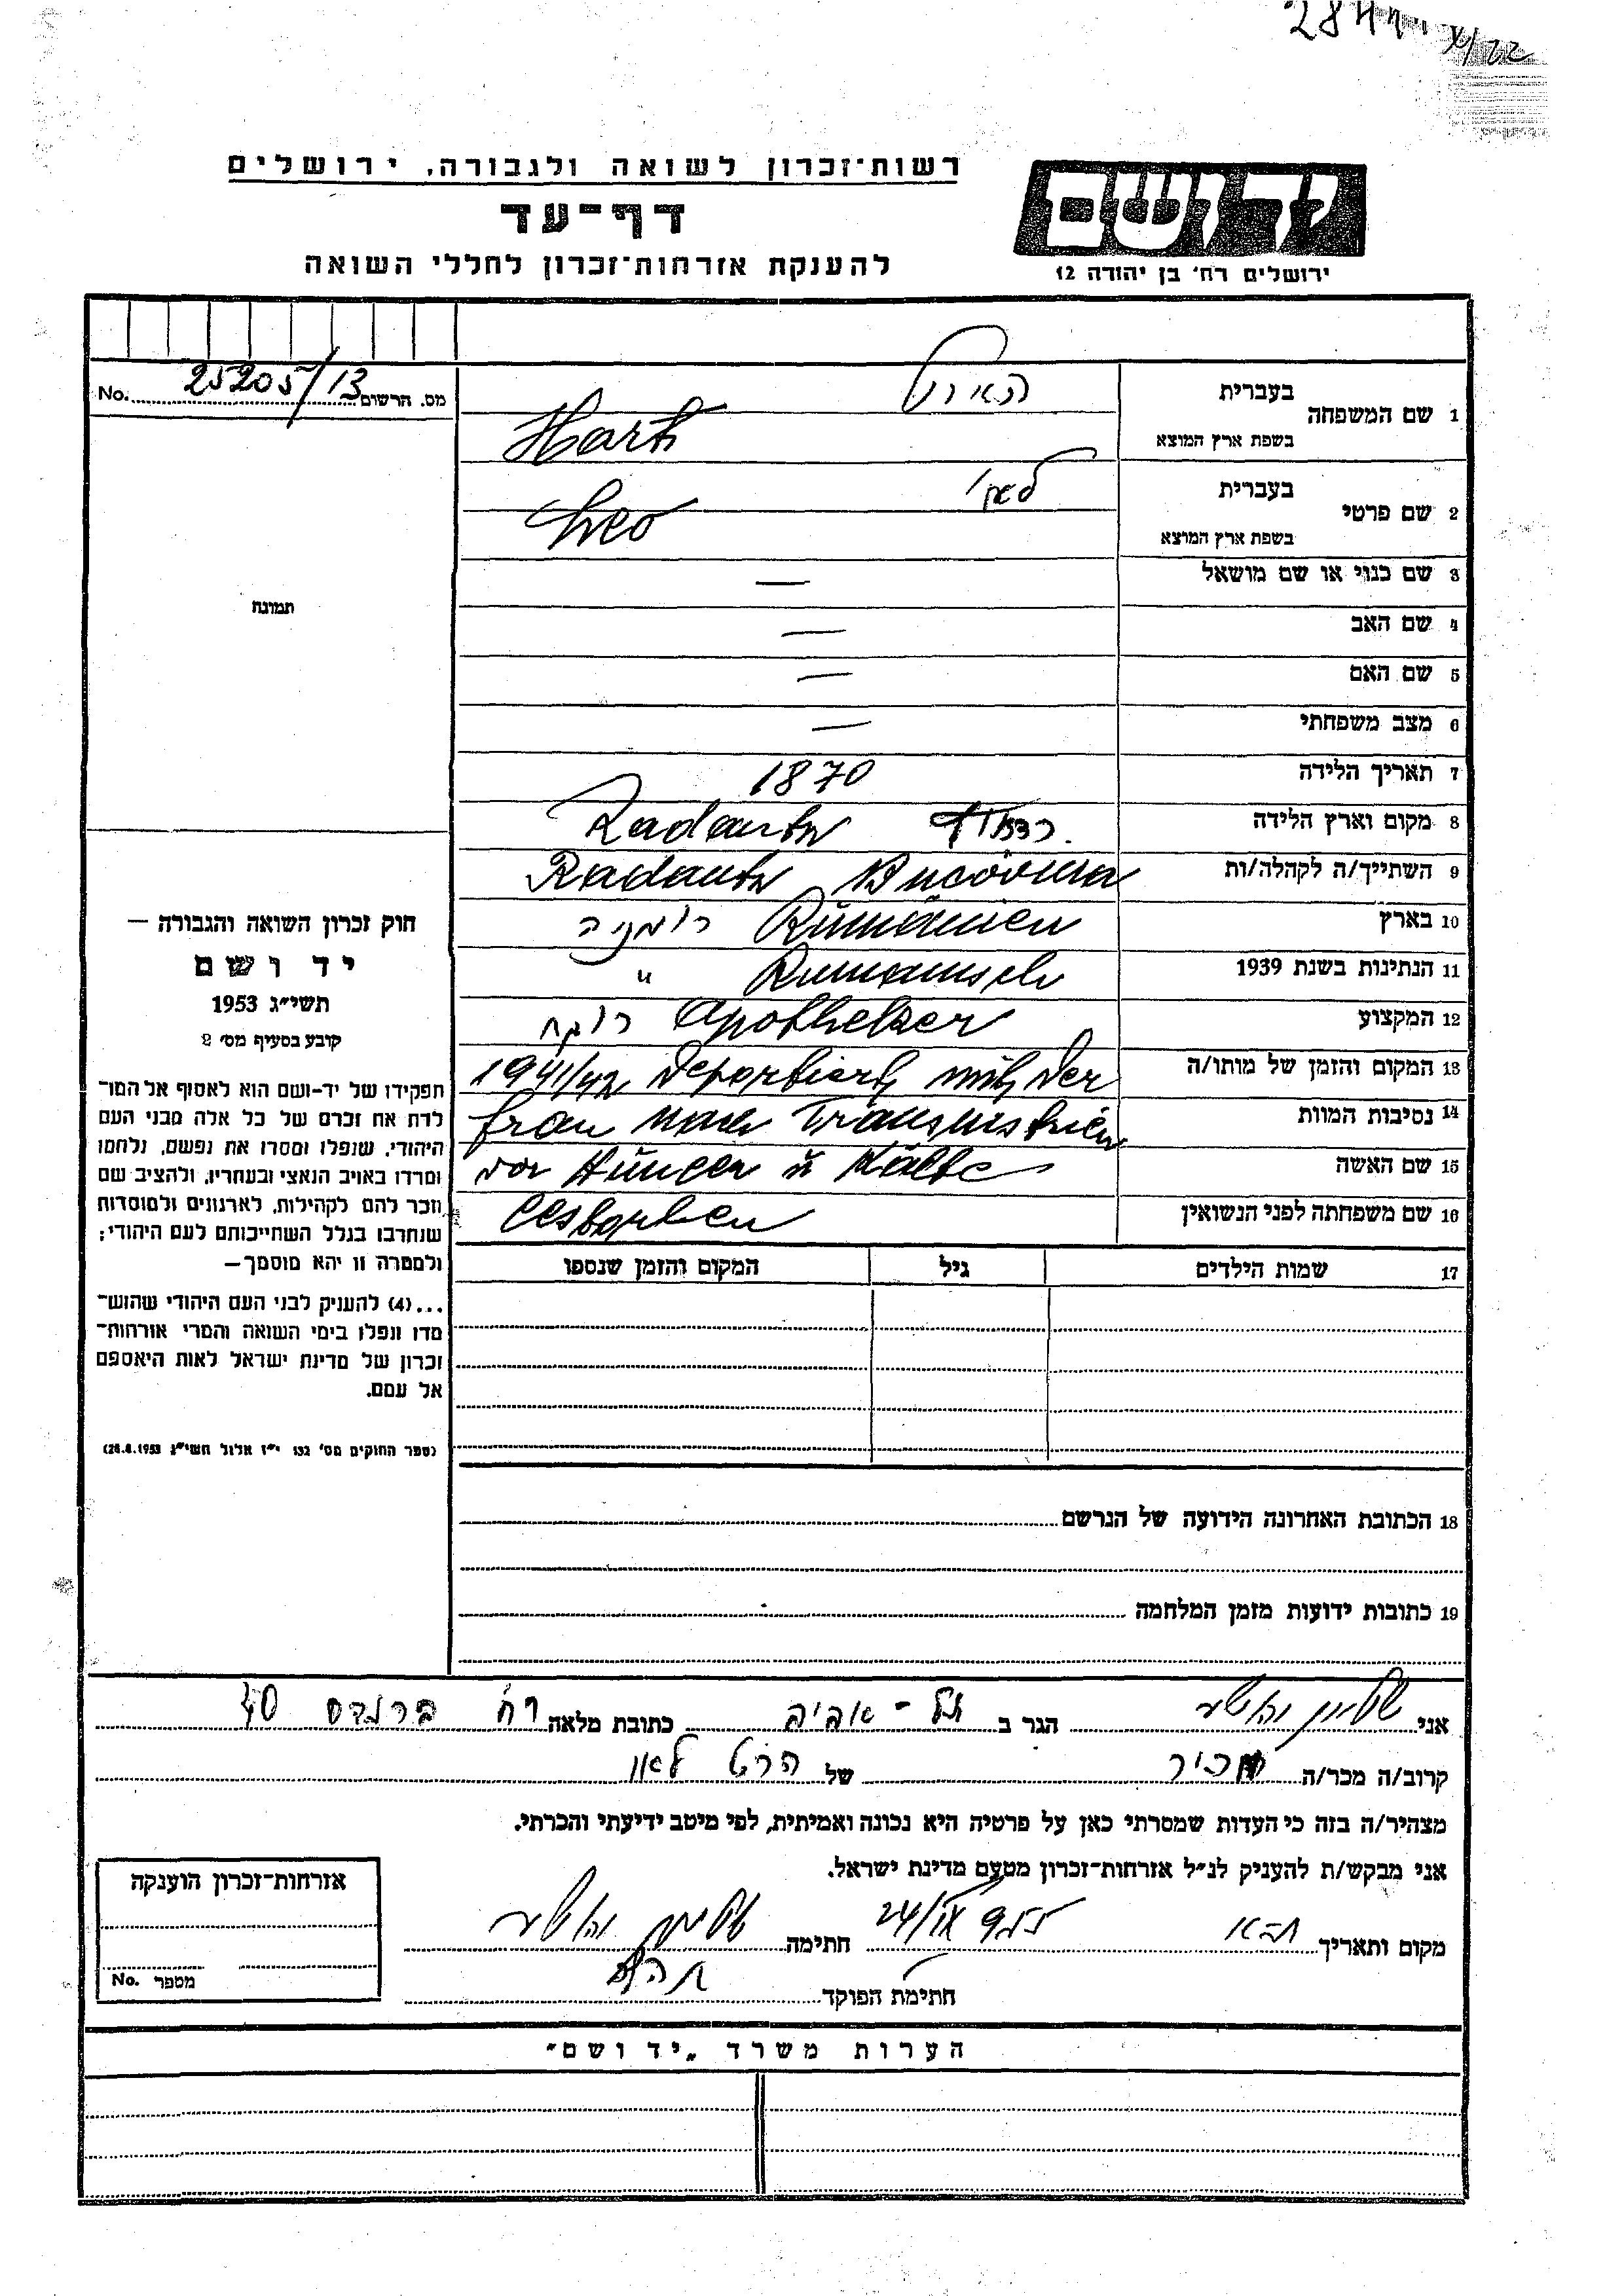 רשות־זכרון לשואה ולגבורה, ירושלים
דף־עד
להענקת אזרחות־זכרון לחללי השואה
יד ושם
ירושלים רח' בן יהודה 12
No. 25205/13 מס. הרשום
1 שם המשפחה
בעברית הארט
בשפת ארץ המוצא Hart
2 שם פרטי
בעברית לאון
בשפת ארץ המוצא Leo
3 שם כנוי או שם מושאל —
4 שם האב —
5 שם האם —
6 מצב משפחתי —
7 תאריך הלידה 1870
8 מקום וארץ הלידה Radautz
9 השתייך/ה לקהלה/ות Radautz Bucovina
10 בארץ Rumänien רומניה
11 הנתינות בשנת 1939 Rumänisch "
12 המקצוע Apotheker רוקח
13 המקום והזמן של מותו/ה 1941/42 Deportiert mit der
14 נסיבות המוות Frau nach Transnistrien
15 שם האשה vor Hunger u Kälte
16 שם משפחתה לפני הנשואין
17 שמות הילדים גיל המקום והזמן שנספו
תמונה
חוק זכרון השואה והגבורה —
יד ושם
תשי״ג 1953
קובע בסעיף מס׳ 2
תפקידו של יד-ושם הוא לאסוף אל המו־
לדת את זכרם של כל אלה מבני העם
היהודי, שנפלו ומסרו את נפשם, נלחמו
ומרדו באויב הנאצי ובעוזריו, ולהציב שם
וזכר להם לקהילות, לארגונים ולמוסדות
שנחרבו בגלל השתייכותם לעם היהודי;
ולמטרה זו יהא מוסמך —
...(4) להעניק לבני העם היהודי שהוש־
מדו ונפלו בימי השואה והמרי אזרחות־
זכרון של מדינת ישראל לאות היאספם
אל עמם.
(ספר החוקים מס׳ 132 י״ז אלול תשי״ג 28.8.1953)
18 הכתובת האחרונה הידועה של הנרשם
19 כתובות ידועות מזמן המלחמה
אני הגר ב תל-אביב כתובת מלאה רח׳ ברנדס
קרוב/ה מכר/ה מכיר של הרט לאון
מצהיר/ה בזה כי העדות שמסרתי כאן על פרטיה היא נכונה ואמיתית, לפי מיטב ידיעתי והכרתי.
אני מבקש/ת להעניק לנ״ל אזרחות־זכרון מטעם מדינת ישראל.
מקום ותאריך ת-א חתימה
חתימת הפוקד
אזרחות־זכרון הוענקה
מספר No.
הערות משרד „יד ושם״